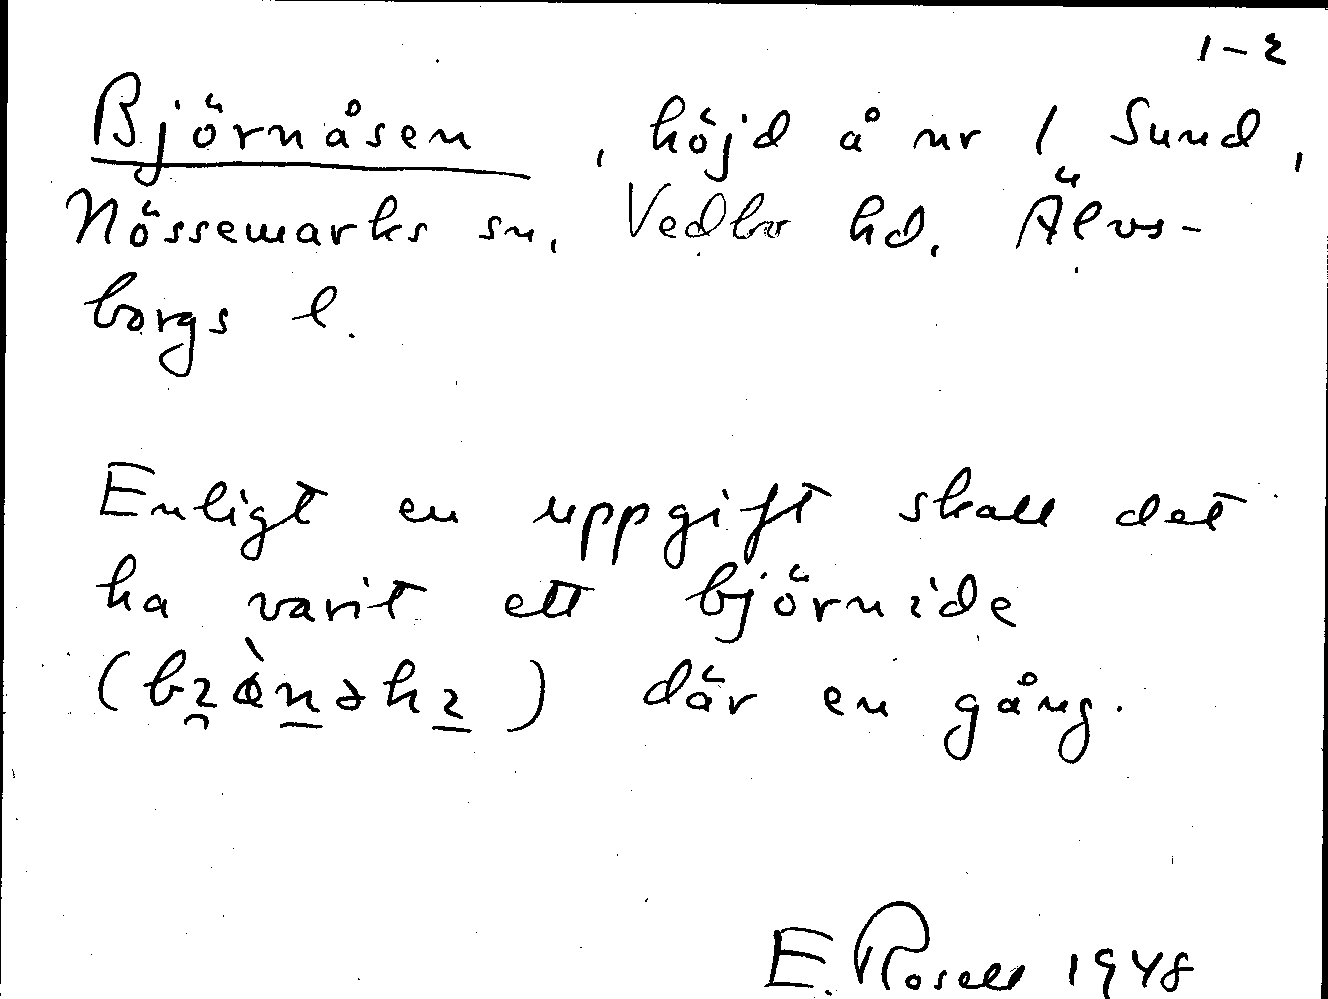 1-2
Björnåsen, höjd å nr 1 Sund,
Nössemarks sn, Vedbo hd. Älvs-
borgs l.
Enligt en uppgift skall det
ha varit ett björnide
där en gång.
E. Rosell 1948